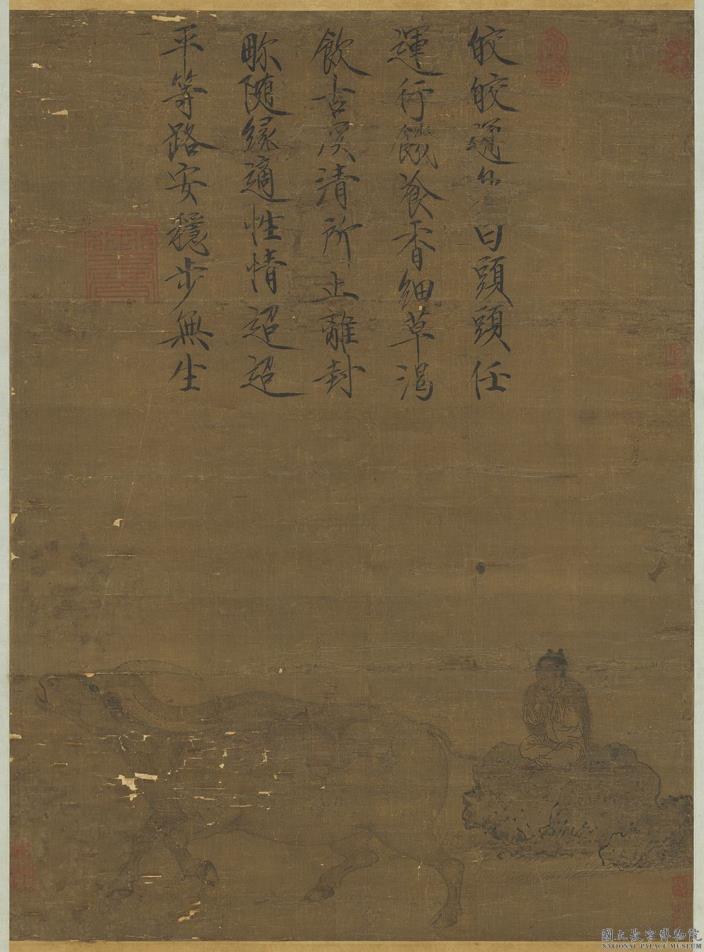 皎皎日頭頭任
運行饑飡香細草渴
飲古溪清所止離封
畛隨緣適性情迢迢
平等路安穩步無生
國立故宮博物院
NATIONAL PALACE MUSEUM